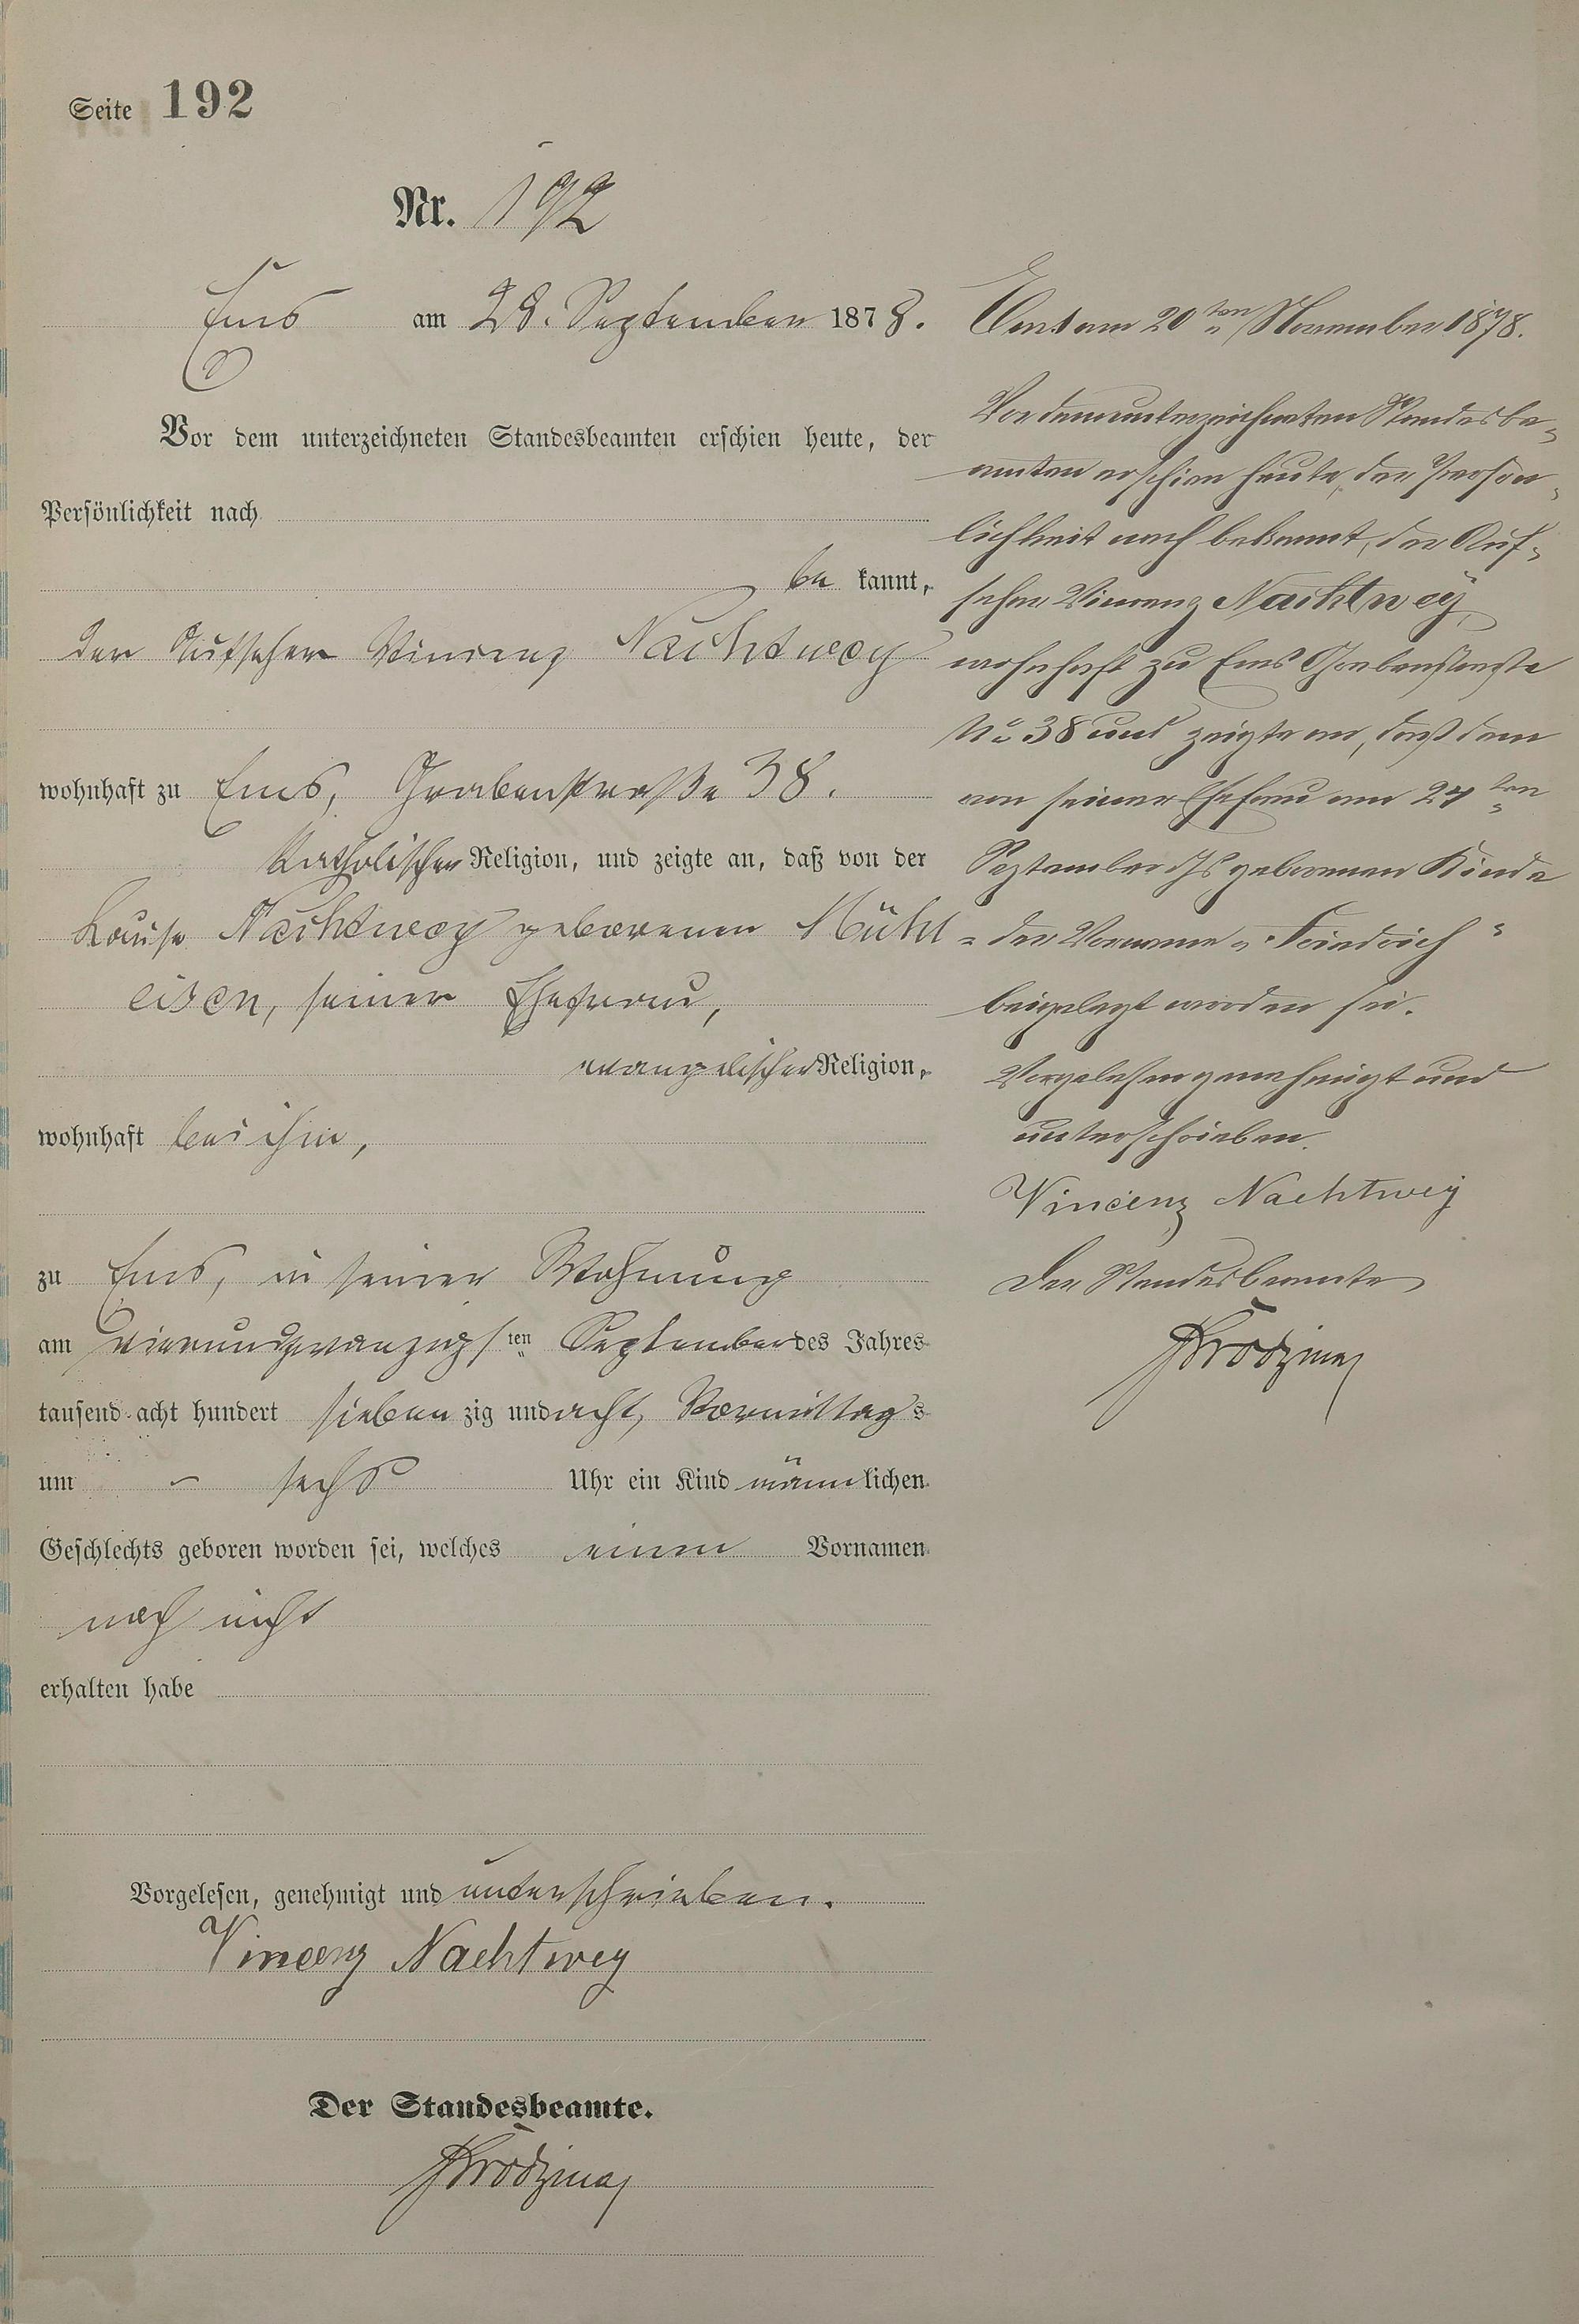 Seite 192
Nr. 192
Ems am 28. September 1878.
Vor dem unterzeichneten Standesbeamten erschien heute, der
Persönlichkeit nach
be kannt,
der Aufseher Vincenz Nachtwey
wohnhaft zu Ems, Grabenstraße 38.
katholischer Religion, und zeigte an, daß von der
Louise Nachtwey geborenen Mühl-
eisen, seiner Ehefrau,
evangelischer Religion,
wohnhaft bei ihm,
zu Ems, in seiner Wohnung
am vierundzwanzigsten September des Jahres
tausend acht hundert siebenzig und acht, Vormittags
um sechs Uhr ein Kind männlichen
Geschlechts geboren worden sei, welches einen Vornamen
noch nicht
erhalten habe
Vorgelesen, genehmigt und unterschrieben.
Vincenz Nachtwey
Der Standesbeamte.
Ems am 20ten November 1878.
Vor dem unterzeichneten Standesbe-
amten erschien heute, der Persön-
lichkeit nach bekannt, der Auf-
seher Vincenz Nachtwey,
wohnhaft zu Ems Grabenstraße
No 38 und zeigte an, daß dem
von seiner Ehefrau am 24ten
September d Js geborenen Kinde
der Vorname "Friedrich"
beigelegt worden sei.
Vorgelesen genehmigt und
unterschrieben.
Vincenz Nachtwey
Der Standesbeamte